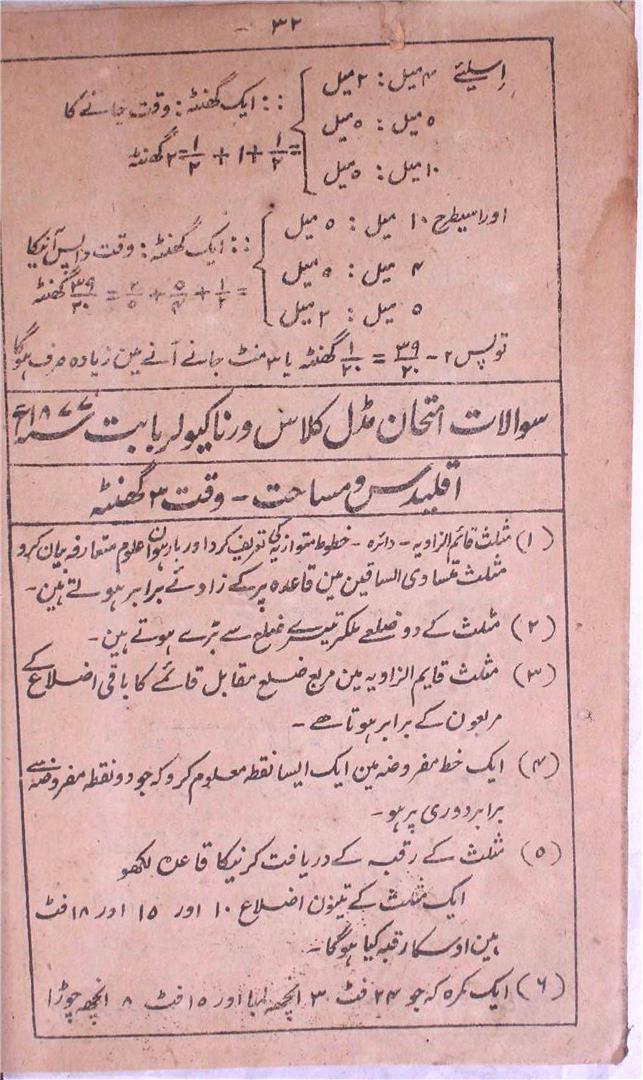 ۳۲
اسلیئے ۴ میل : ۲ میل
۵ میل : ۵ میل
۱۰ میل : ۵ میل
: : ایک گھنٹہ : وقت جانے کا
= ۱/۲ + ۱ + ۱/۲ = ۲ گھنٹہ
اور اسیطرح ۱۰ میل : ۵ میل
۴ میل : ۵ میل
۵ میل : ۲ میل
: : ایک گھنٹہ : وقت واپس آنیکا
= ۱/۲ + ۵/۴ + ۲/۵ = ۳۹/۲۰ گھنٹہ
تو پس ۲ - ۳۹/۲۰ = ۱/۲۰ گھنٹہ یا ۳ منٹ جانے آنے مین زیادہ صرف ہوگا
سوالات امتحان مڈل کلاس ورناکیولر بابت سنہ ۱۸۷۷ء
اقلیدس و مساحت - وقت ۳ گھنٹہ
(۱) مثلث قائم الزاویہ - دائرہ - خطوط متوازیہ کی تعریف کرو اور بارہوان علوم متعارفہ بیان کرو
مثلث متساوی الساقین مین قاعدہ پر کے زاوئے برابر ہوتے ہین -
(۲) مثلث کے دو ضلعے ملکر تیسرے ضلع سے بڑے ہوتے ہین -
(۳) مثلث قایم الزاویہ مین مربع ضلع مقابل قائمے کا باقی اضلاع کے
مربعون کے برابر ہوتا ہے -
(۴) ایک خط مفروضہ مین ایک ایسا نقطہ معلوم کرو کہ جو دو نقطہ مفروضہ سے
برابر دوری پر ہو -
(۵) مثلث کے رقبہ کے دریافت کرنیکا قاعدہ لکھو
ایک مثلث کے تینون اضلاع ۱۰ اور ۱۵ اور ۱۸ فٹ
ہین اوسکا رقبہ کیا ہوگا -
(۶) ایک کمرہ کہ جو ۲۴ فٹ ۳ انچھ لمبا اور ۱۵ فٹ ۸ انچھ چوڑا